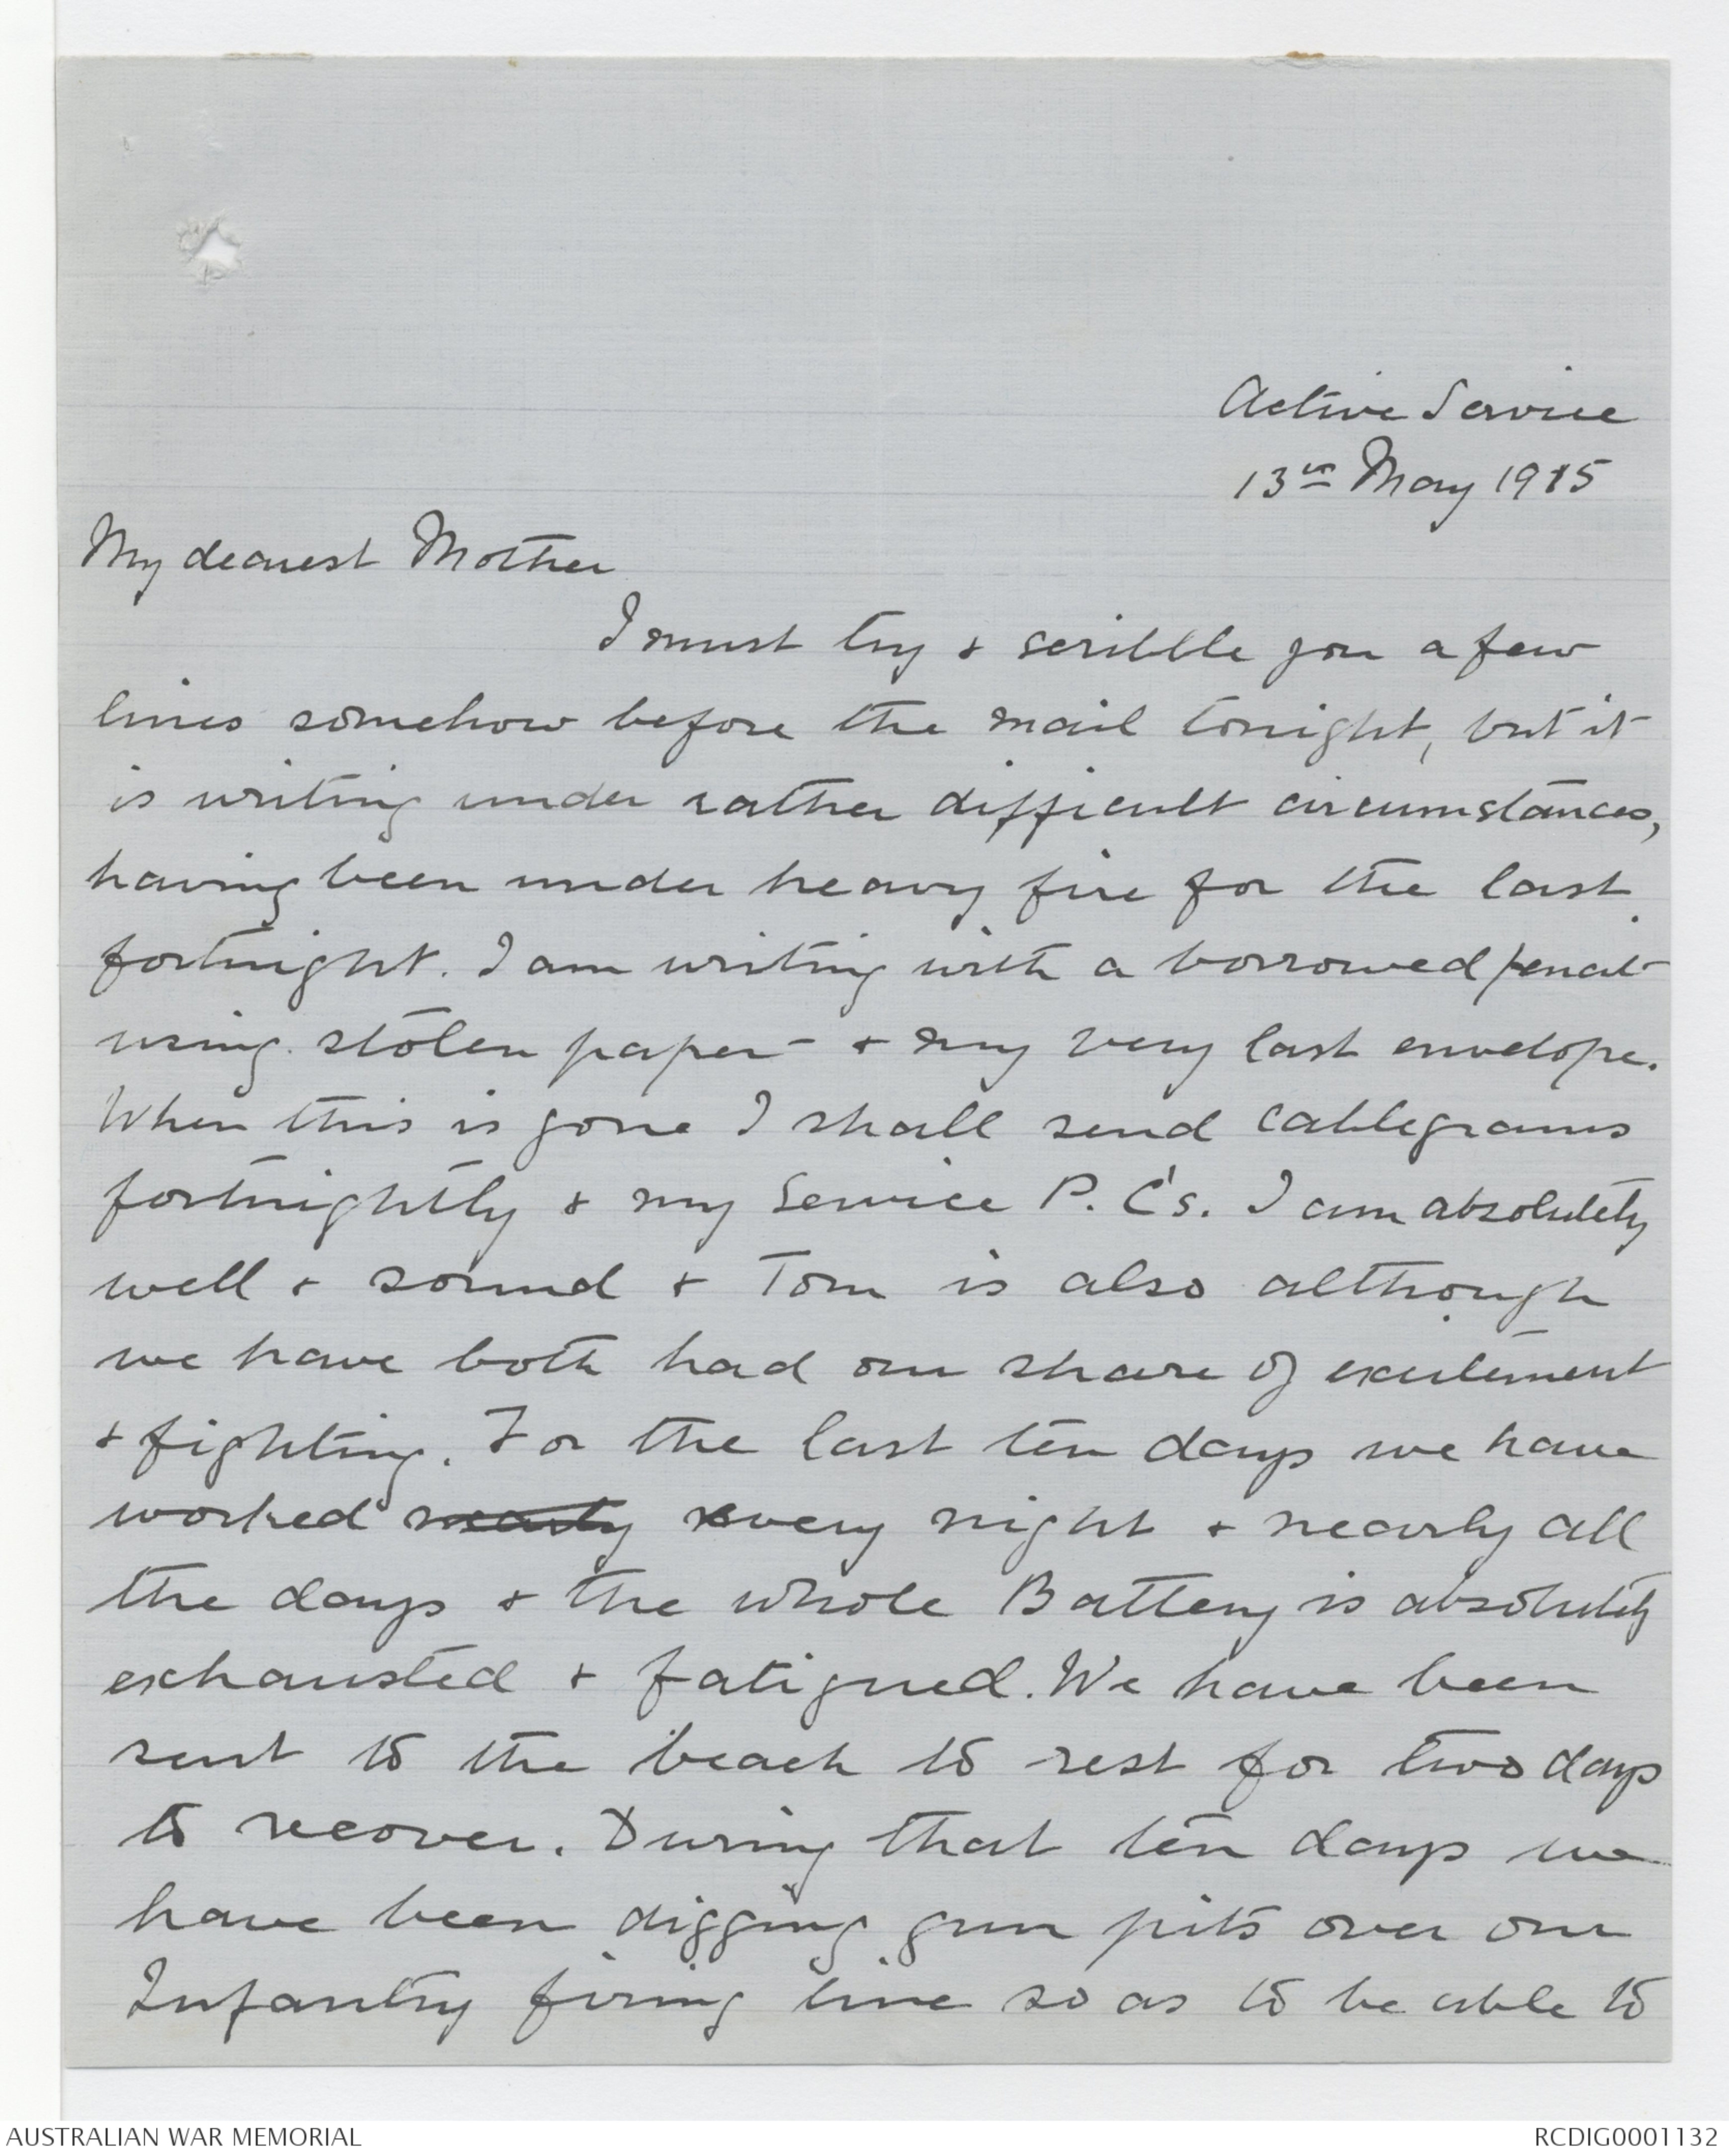 Active Service
13th May 1915
My dearest Mother
I must try & scribble you a few
lines somehow before the mail tonight, but it
is writing under rather difficult circumstances,
having been under heavy fire for the last
fortnight. I am writing with a borrowed pencil
using stolen paper - & my very last envelope.
When this is gone I shall send cablegrams
fortnightly & my Service P.C's. I am absolutely
well & sound & Tom is also although
we have both had our share of excitement
& fighting. For the last ten days we have
worked nearly every night & nearly all
the days & the whole Battery is absolutely
exhausted & fatigued. We have been
sent to the beach to rest for two days
to recover. During that ten days we
have been digging gun pits over our
Infantry firing line so as to be able to
AUSTRALIAN WAR MEMORIAL
RCDIG0001132